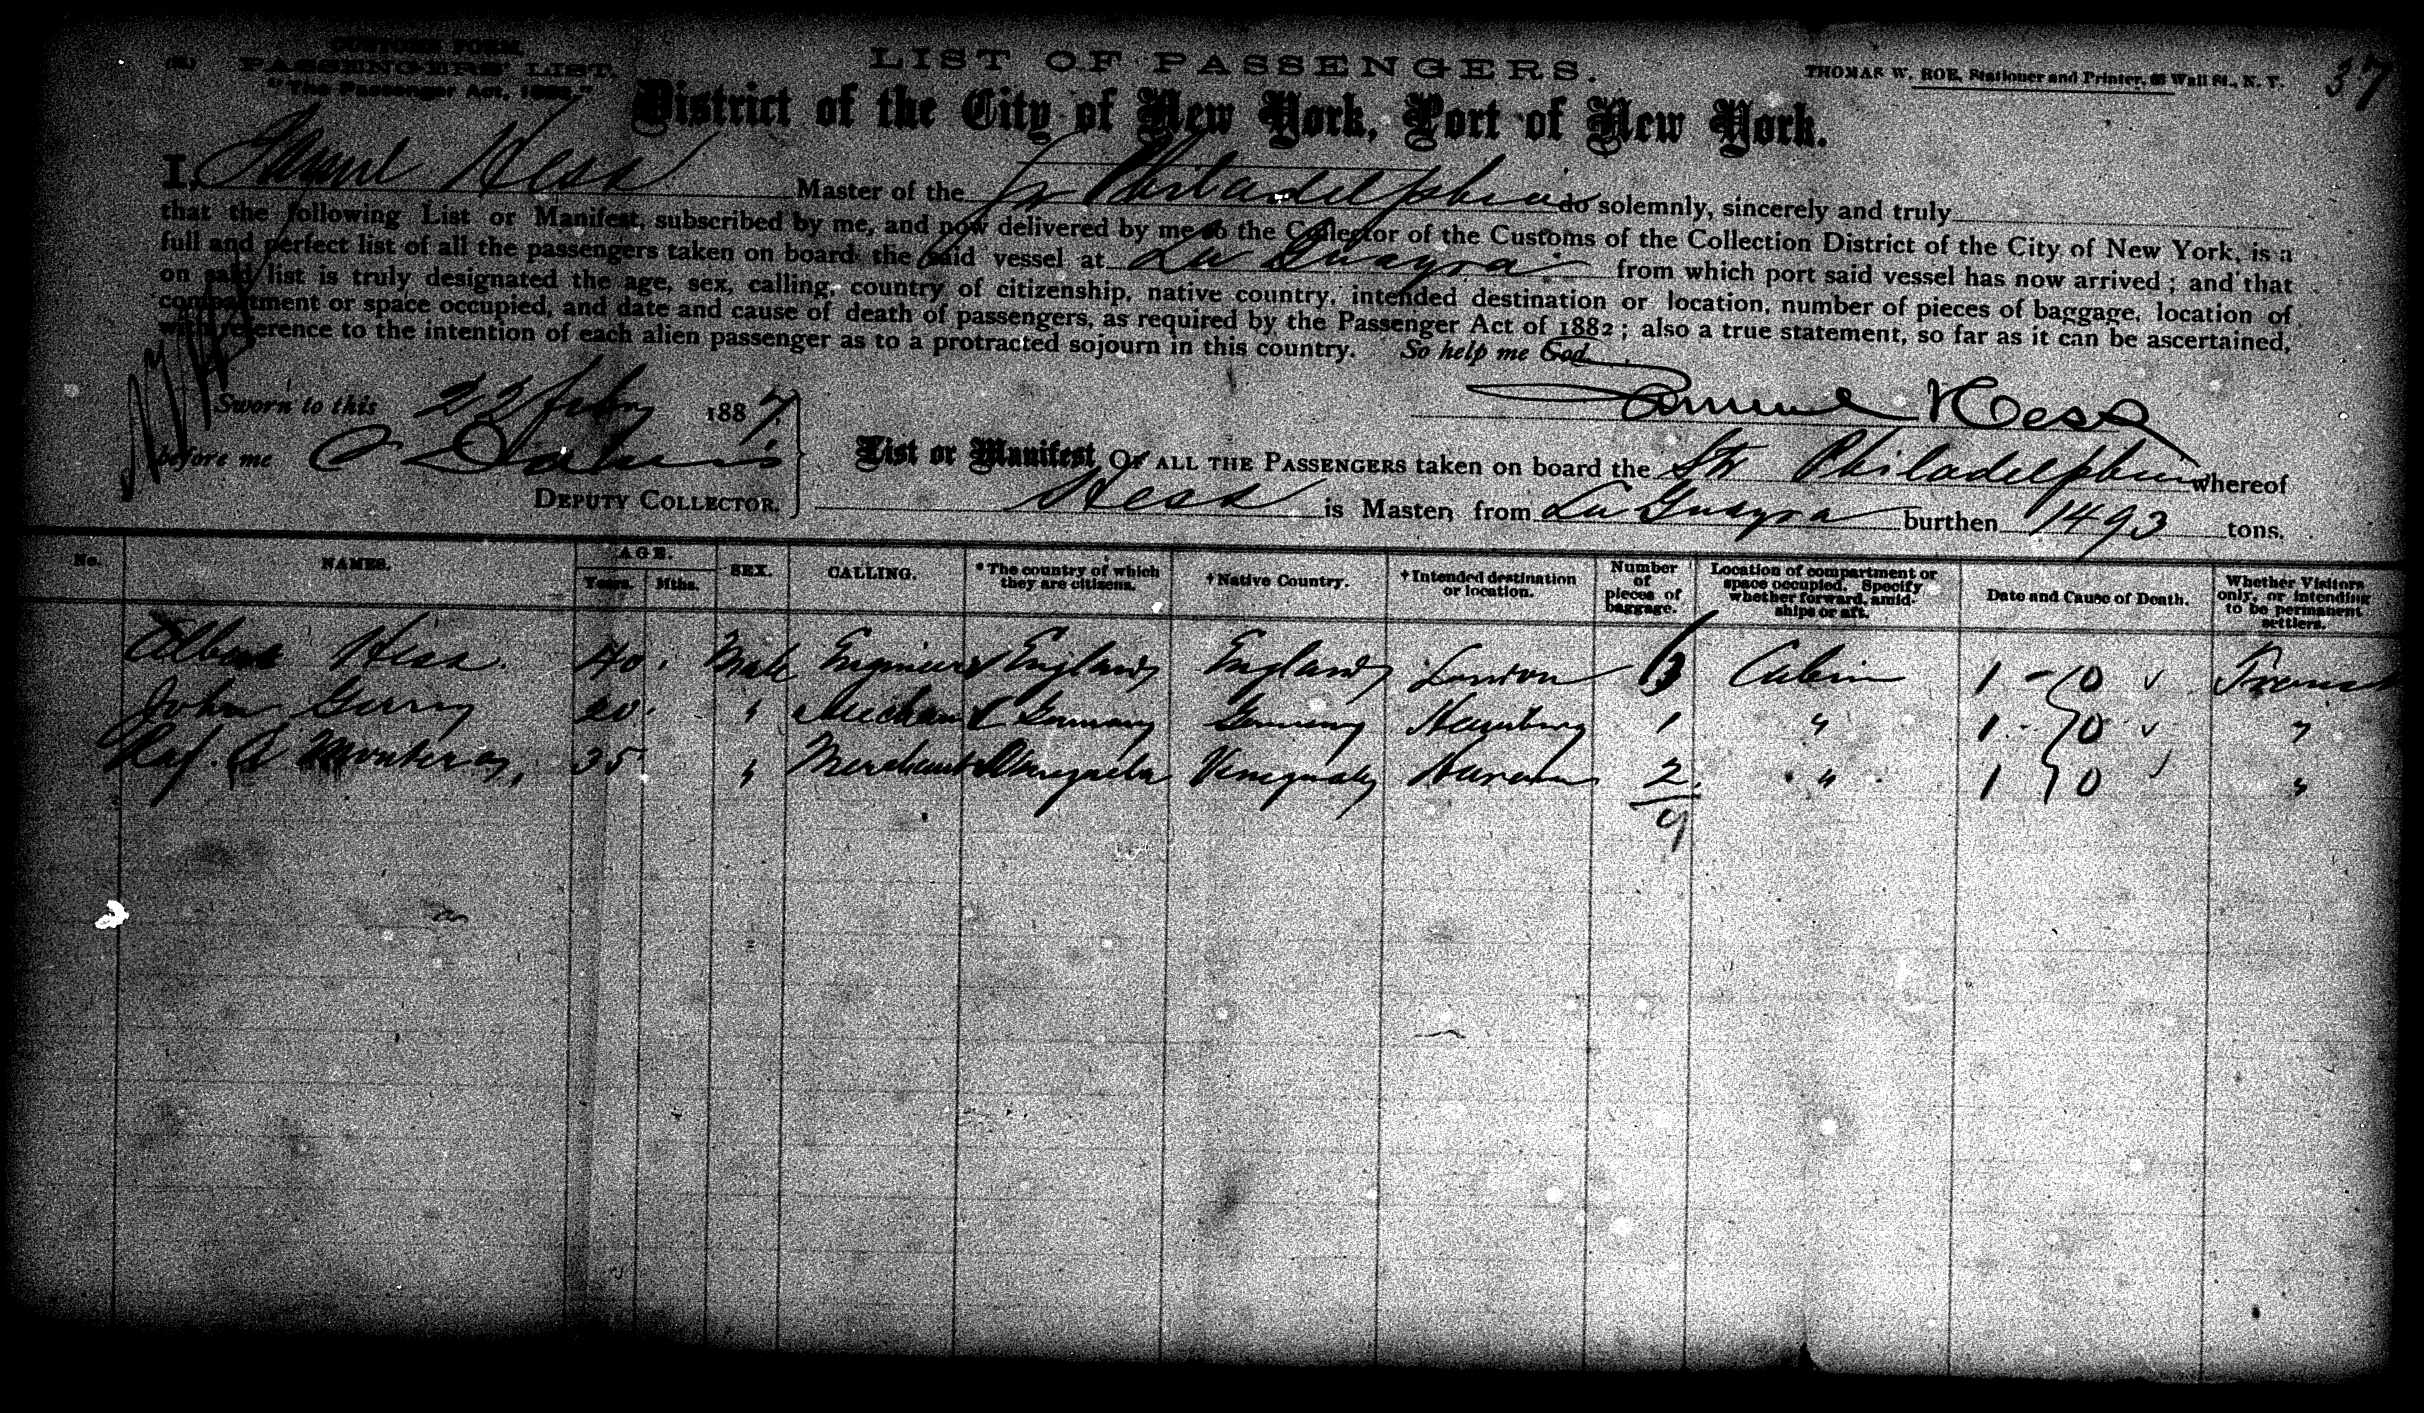 CUSTOMS FORM.
PASSENGERS' LIST.
"The Passenger Act, 1882."
LIST OF PASSENGERS.
THOMAS W. ROE, Stationer and Printer, Wall St., N. Y.
37
District of the City of New York, Port of New York.
I, Samuel Hess Master of the Str Philadelphia do solemnly, sincerely and truly
that the following List or Manifest, subscribed by me, and now delivered by me to the Collector of the Customs of the Collection District of the City of New York, is a
full and perfect list of all the passengers taken on board the said vessel at La Guayra from which port said vessel has now arrived; and that
on said list is truly designated the age, sex, calling, country of citizenship, native country, intended destination or location, number of pieces of baggage, location of
compartment or space occupied, and date and cause of death of passengers, as required by the Passenger Act of 1882; also a true statement, so far as it can be ascertained,
with reference to the intention of each alien passenger as to a protracted sojourn in this country. So help me God.
Sworn to this 22 Feby 1887
Samuel Hess
before me
DEPUTY COLLECTOR.
List or Manifest OF ALL THE PASSENGERS taken on board the Str Philadelphia whereof
Hess is Master, from La Guayra burthen 1493 tons.
No. NAMES. AGE. Years. Mths. SEX. CALLING. *The country of which they are citizens. †Native Country. †Intended destination or location. Number of pieces of baggage. Location of compartment or space occupied. Specify whether forward, amidships or aft. Date and Cause of Death. Whether Visitors only, or intending to be permanent settlers.
Albert Hess. 40 Male Engineer England England London 6 Cabin 1 - 10
John Gerry 20 " Mechanic Germany Germany Hamburg 1 " 1 - 10 "
Raf. Monteray, 35 " Merchant Venezuela Venezuela Havana 2 " 1 10 "
9